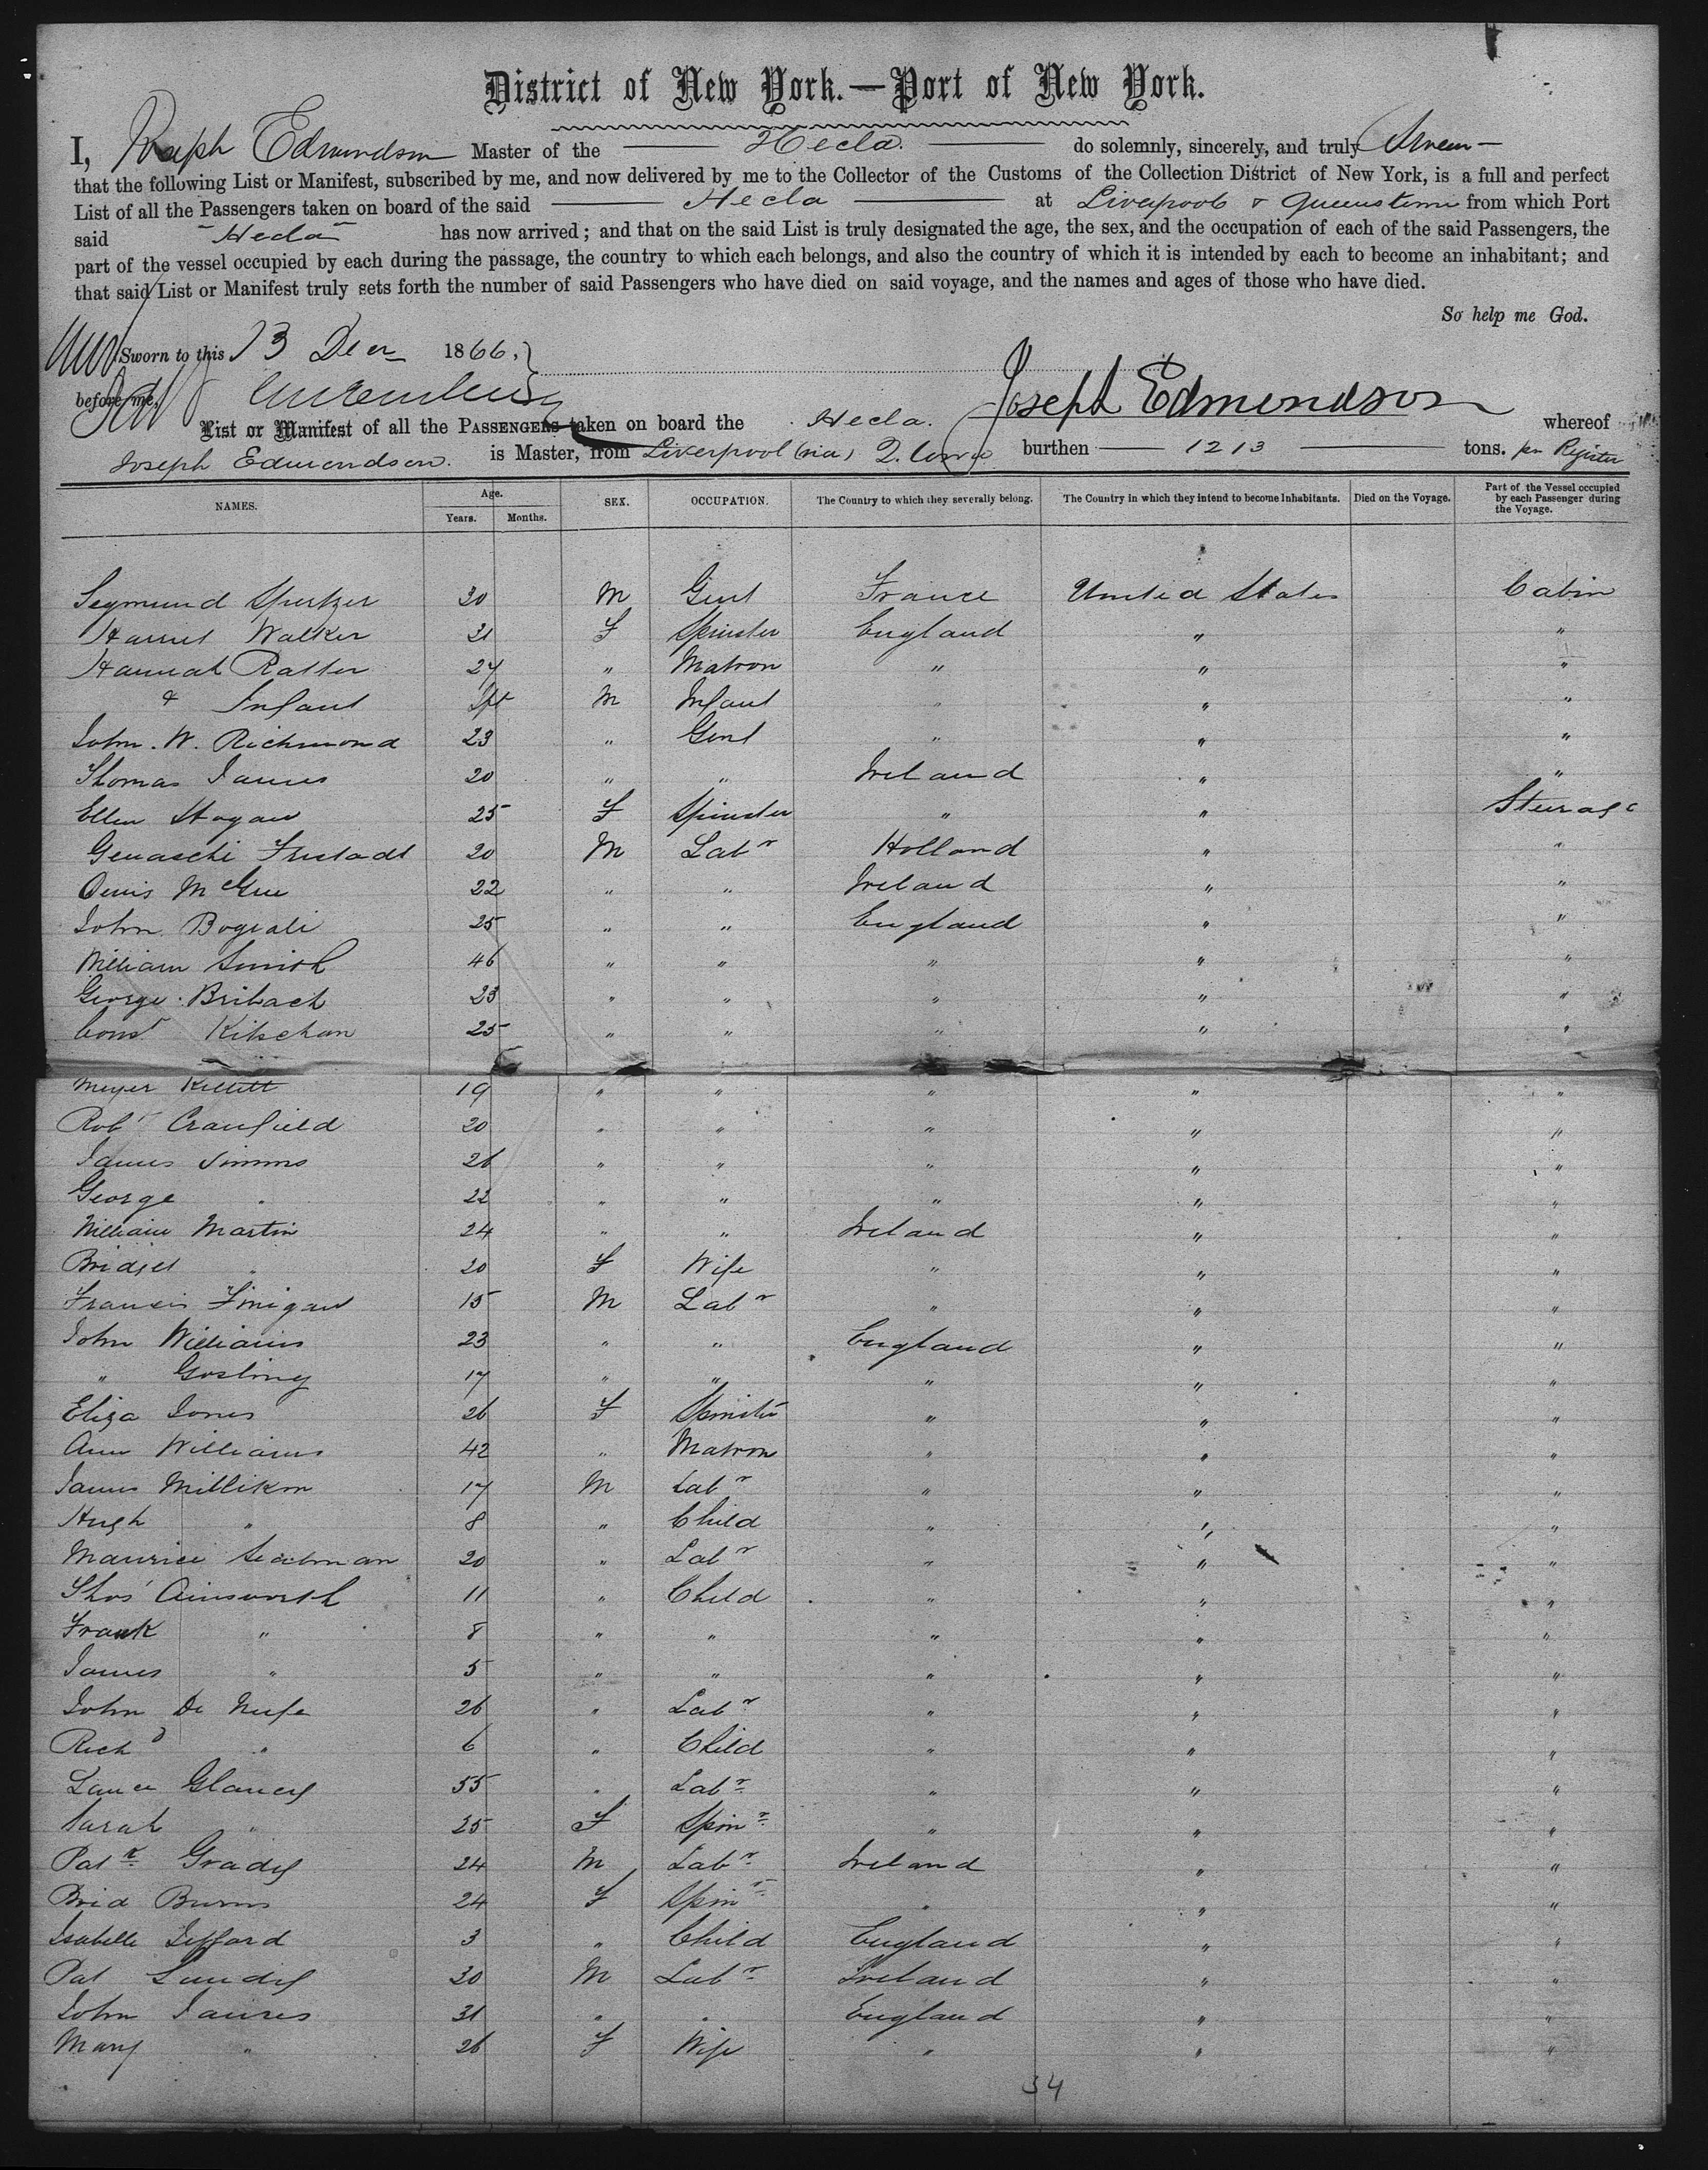 District of New York.—Port of New York.
I, Joseph Edmondson Master of the Hecla. do solemnly, sincerely, and truly Swear
that the following List or Manifest, subscribed by me, and now delivered by me to the Collector of the Customs of the Collection District of New York, is a full and perfect
List of all the Passengers taken on board of the said Hecla at Liverpool & Queenstown from which Port
said "Hecla" has now arrived; and that on the said List is truly designated the age, the sex, and the occupation of each of the said Passengers, the
part of the vessel occupied by each during the passage, the country to which each belongs, and also the country of which it is intended by each to become an inhabitant; and
that said List or Manifest truly sets forth the number of said Passengers who have died on said voyage, and the names and ages of those who have died.
So help me God.
Sworn to this 13 Decr 1866.
before me, Joseph Edmondson
List or Manifest of all the PASSENGERS taken on board the Hecla. whereof
Joseph Edmondson. is Master, from Liverpool (via) Q. town burthen 1213 tons. per Register
NAMES. Age. Years. Months. SEX. OCCUPATION. The Country to which they severally belong. The Country in which they intend to become Inhabitants. Died on the Voyage. Part of the Vessel occupied by each Passenger during the Voyage.
Segmund 30 M Gent France United States Cabin
Harriet Walker 31 F Spinster England " "
Hannah Ratter 27 " Matron " " "
& Infant Inft M Infant " " "
John. W. Richmond 23 " Gent " " "
Thomas James 20 " " Ireland " "
Ellen Hogan 25 F Spinster " " Steerage
20 M Labr Holland " "
Denis McGue 22 " " Ireland " "
John 25 " " England " "
William Smith 46 " " " " "
George Bribach 23 " " " " "
Const Kitschan 25 " " " " "
Meyer Killitt 19 " " " " "
Robt Cranfield 20 " " " " "
James Simms 26 " " " " "
George " 22 " " " " "
William Martin 24 " " Ireland " "
Bridget " 20 F Wife " " "
Francis Finigan 15 M Labr " " "
John Williams 23 " " England " "
" Gosling 17 " " " " "
Eliza Jones 26 F Spinster " " "
Ann Williams 42 " Matron " " "
James Millikin 17 M Labr " " "
Hugh " 8 " Child " " "
Maurice 20 " Labr " " "
Thos Ainsworth 11 " Child " " "
Frank " 8 " " " " "
James " 5 " " " " "
John De 26 " Labr " " "
Richd " 6 " Child " " "
Glancy 55 " Labr " " "
Sarah " 25 F Spinr " " "
Patk Grady 24 M Labr Ireland " "
Brid Burns 24 F Spinr " " "
Isabella Jefford 3 " Child England " "
Pat Lundy 30 M Labr Ireland " "
John James 31 " " England " "
Mary " 26 F Wife " " "
34